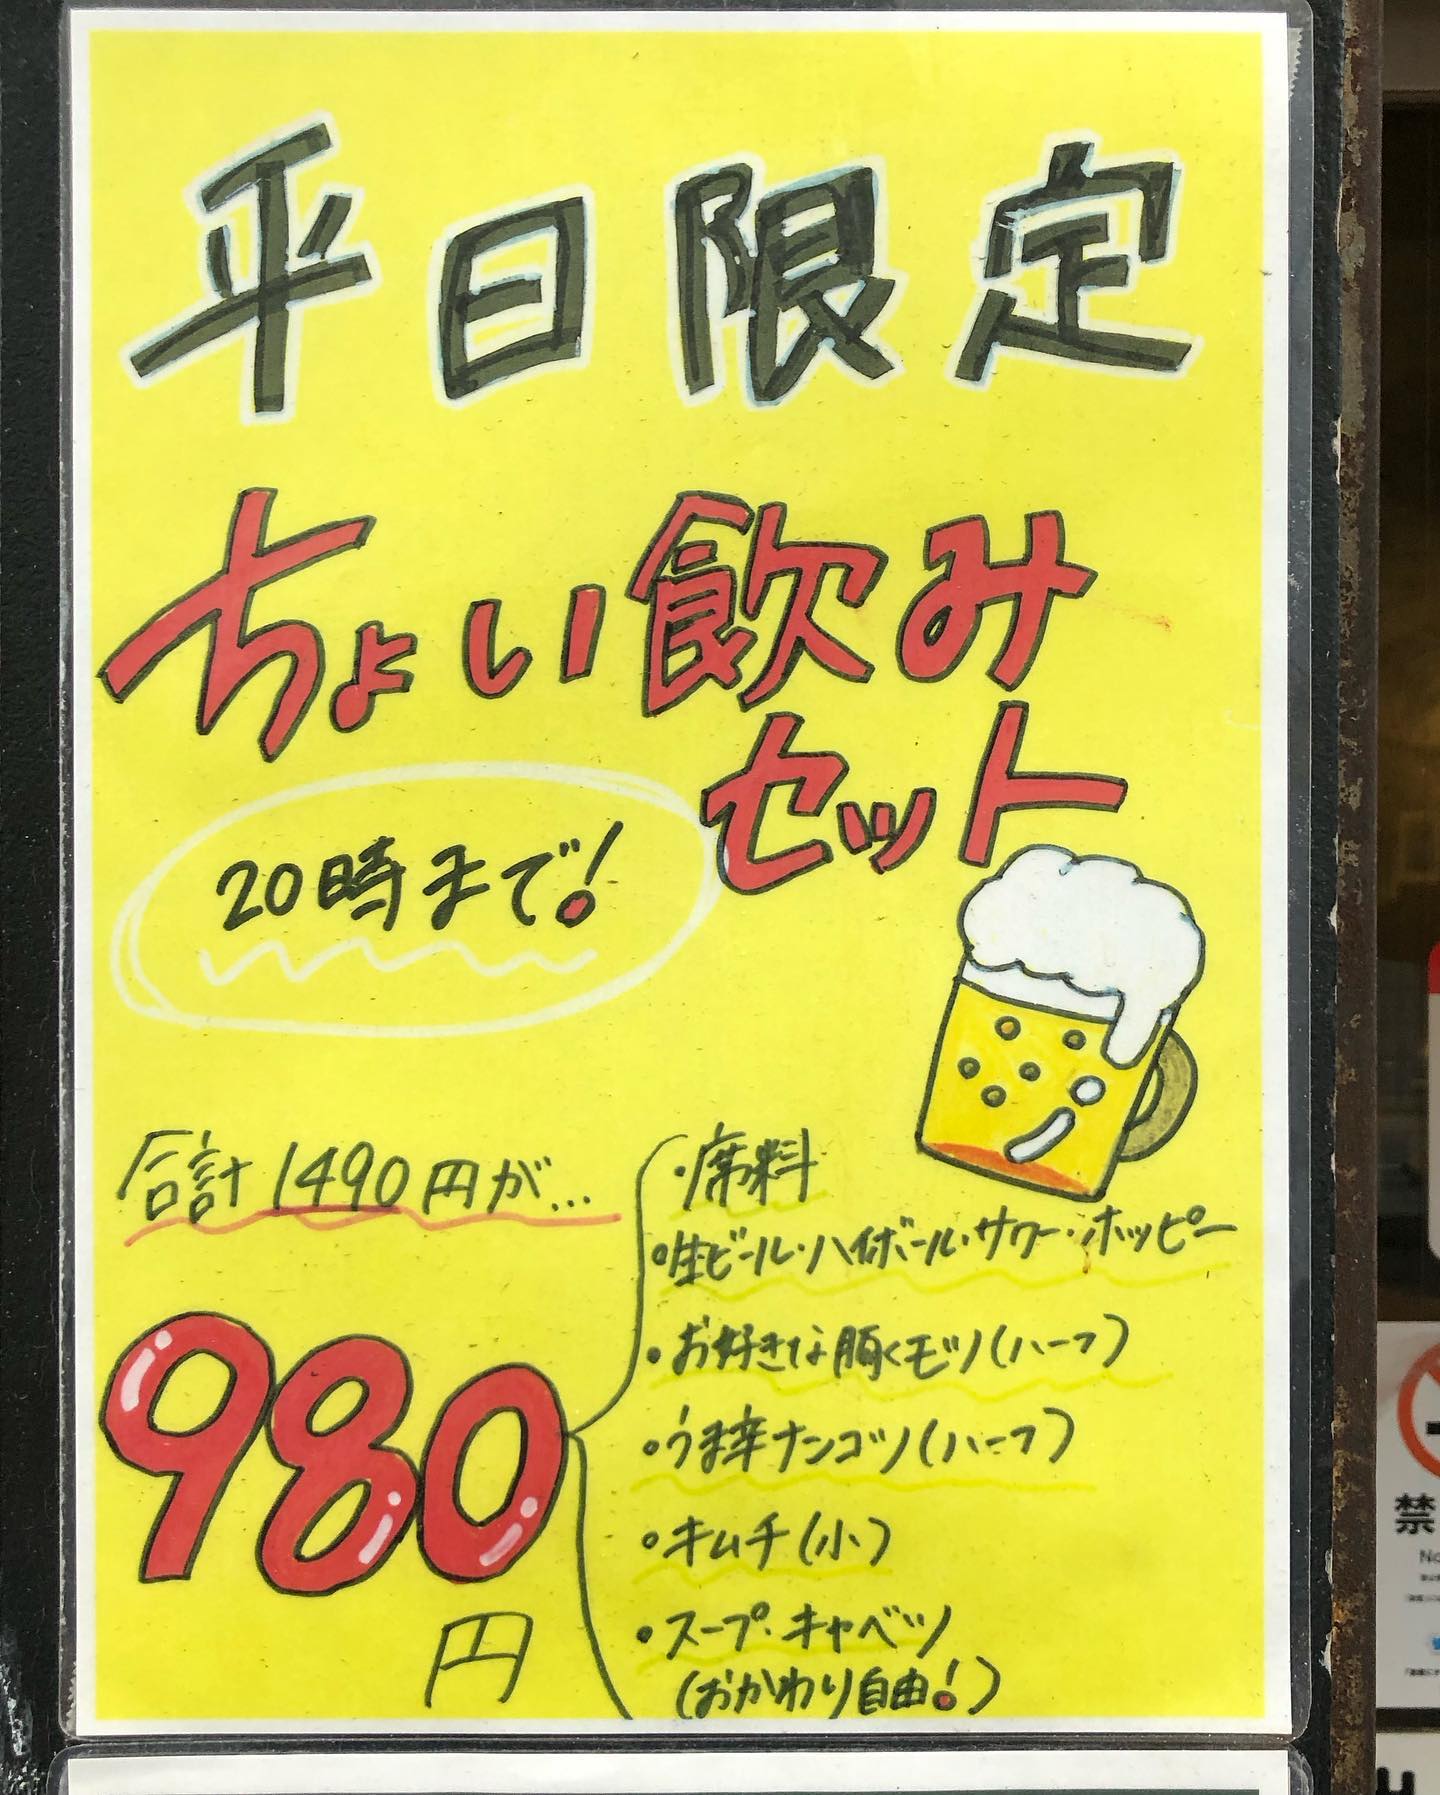 平日限定
ちょい飲み
セット
20時まで!
合計1490円が...
980
円
・席料
・生ビール・ハイボール・サワー・ホッピー
・お好きな豚くモツ(ハーフ)
・うま辛ナンコツ(ハーフ)
・キムチ(小)
・スープ・キャベツ
(おかわり自由!)
禁
No